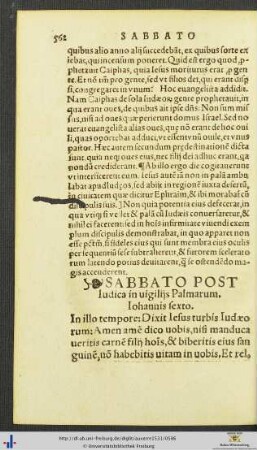 562 SABBATO
quibus alio anno alij succedebāt, ex quibus sorte ex
iebas, qui incensum poneret. Quid est ergo quod, p-
phetauit Caiphas, quia Iesus moriturus erat, p gente
. Et nō tm̄ pro gente, sed vt filios dei, qui erant disp
si, congregaret in vnum? Hoc euangelista addidit.
Nam Caiphas de sola Iudæorū gente prophetauit, in
qua erant oues, de quibus ait ipse dn̄s. Non sum mis
sus, nisi ad oues quæ perierunt domus Israel. Sed no
uerat euangelista alias oues, quæ nō erant de hoc oui
li, quas oportebat adduci, vt esset vnū ouile, et vnus
pastor. Hæc autem secundum prædestinationē dicta
sunt, quia neq; oues eius, nec filij dei adhuc erant, qui
ponūt crediderant. Ab illo ergo die cogitauerunt
vt interficerent eum. Iesus autē iā non in palā ambu
labat apud Iudæos, sed abijt in regionē iuxta desertū,
in ciuitatem quæ dicitur Ephraim, & ibi morabat cū
discipulis suis.] Non quia potentia eius defecerat, in
qua vtiq; si vellet & palā cū Iudæis conuersaretur, &
nihil ei facerent: sed in hoīs infirmitate viuendi exem
plum discipulis demonstrabat, in quo appareret non
esse pctm̄, si fideles eius qui sunt membra eius oculis
persequentiū sese subtraherent, & furorem scelerato
rum latendo potius deuitarent, q̄ se ostendēdo ma-
gis accenderent.
SABBATO POST
Iudica in vigilijs Palmarum.
Iohannis sexto.
In illo tempore: Dixit Iesus turbis Iudæo
rum: Amen amē dico uobis, nisi manduca
ueritis carnē filij hoīs, & biberitis eius san
guinē, nō habebitis uitam in uobis. Et rel,
http://dl.ub.uni-freiburg.de/diglit/ausonr1531/0586
© Universitätsbibliothek Freiburg